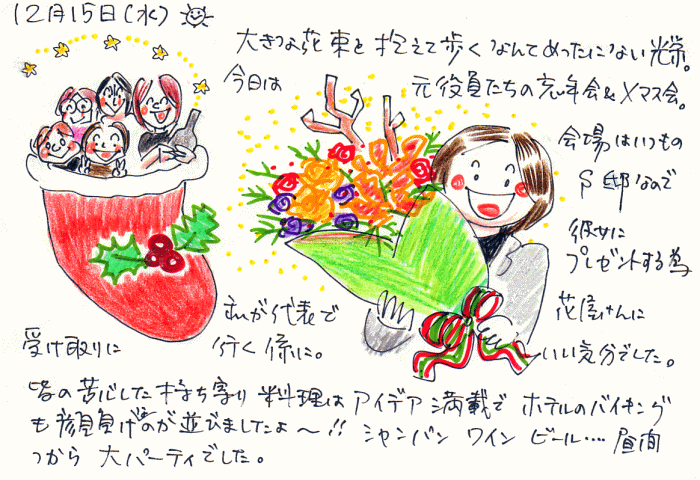 12月15日(水)
大きな花束を抱えて歩くなんてめったにない光栄。
今日は 元役員たちの忘年会&Xマス会。
会場はいつもの
S邸なので
彼女に
プレゼントする為
花屋さんに
受け取りに 私が代表で
行く係に。
いい気分でした。
皆の苦心した持ち寄り料理はアイデア満載でホテルのバイキング
も顔負けのが並びましたよ〜!! シャンパン ワイン ビール…. 昼間
っから 大パーティでした。